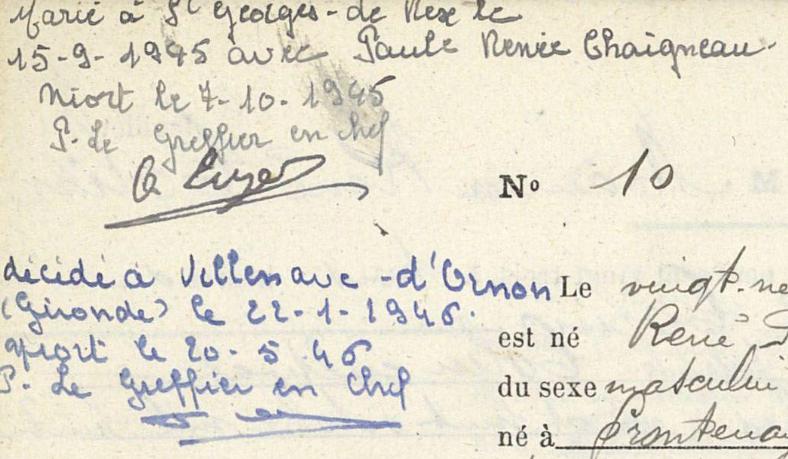 Marié à St Georges-de Rex le
15-9-1945 avec Paule Renée Chaigneau.
Niort le 7-10-1945
P. Le Greffier en chef
No 10
décédé à Villenave-d'Ornon
(Gironde) le 22-1-1946.
Niort le 20-5.46
P. Le Greffier en Chef
Le vingt-ne
est né René
du sexe masculin
né à Frontenay